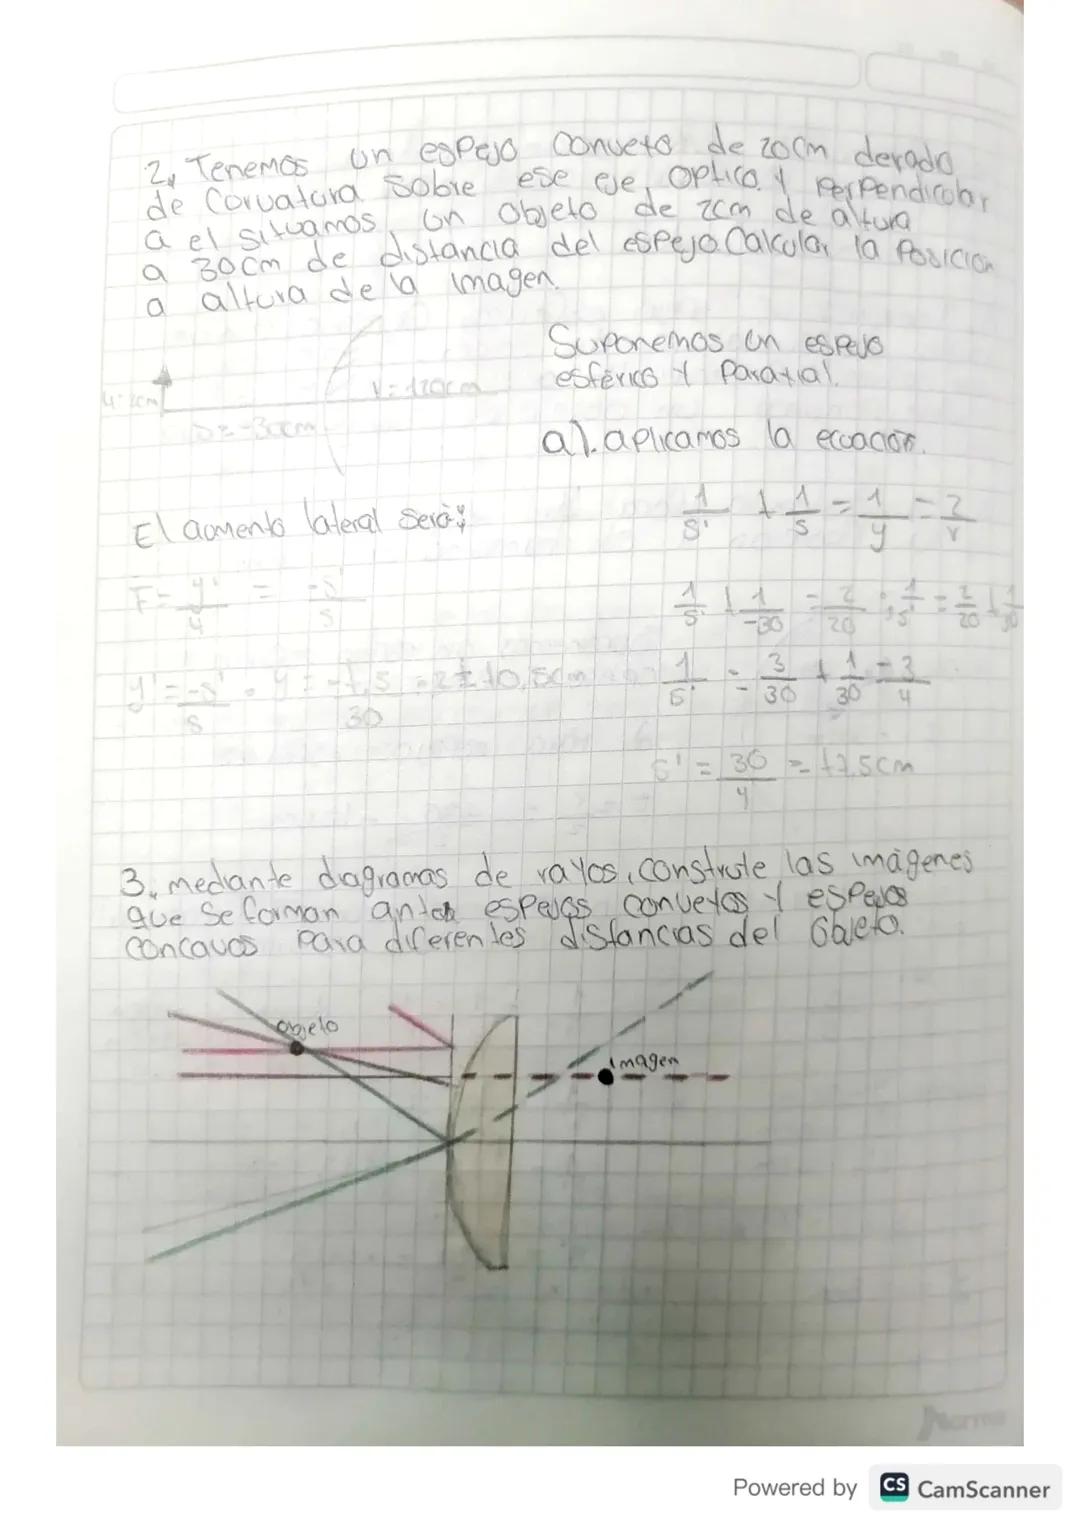 2, Tenemos un espejo Conveto de 20cm derado
de Corvatura sobre ese eje, Optico. y Perpendicolar
a el situamos un Objeto de 2cm de altura
a 30cm de distancia del espejo. Calcular la Posicion
a altura de la imagen.
Suponemos un espejo
esférico y Paraxial.
r=120cm
S=-30cm
a). aplicamos la ecuación.
El aomento lateral será;
1/s' + 1/s = 1/y = 2/r
F = y'/y = -s'/s
1/s' + 1/-30 = 2/20 ; 1/s' = 2/20 + 1/30
1/s' = 3/30 + 1/30 = 3/4
y' = -s'/s · y = -7,5/30 · 2 = +0,5cm
s' = 30/4 = +7.5cm
3, mediante diagramas de rayos, construte las imágenes
que se forman antes espejos convexos y espejos
concavos Para diferentes distancias del Objeto.
objeto
imagen
Norma
Powered by CS CamScanner